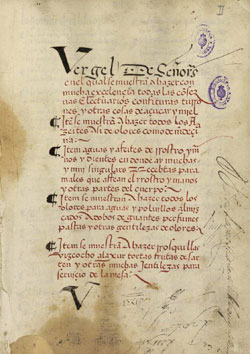 II
Vergel De Señores
en el qual se muestrā a hazer con
mucha excelencia todas las cōser
uas Electuarios confituras turro
nes y otras cosas de açucar y miel
Itē se muestrā A hazer todos los A
zeites Así de olores como de medi
çina
Itēm aguas y afeites de Rostro y ma
nos y Dientes en donde ay muchas
y muy singulares Rezebtas para
males que affean el rrostro y manos
y otras partes del cuerpo
Itēm se muestran A hazer todos los
olores para aguas y poluillos almiz
cados Adobos de guantes perfumes
pastas y otras gentilezas de olores
Itēm se muestrā A hazer rosquillas
Vizcocho alaxur tortas frutas de sar
ten y otras muchas gentilezas para
seruicio de la mesa
V